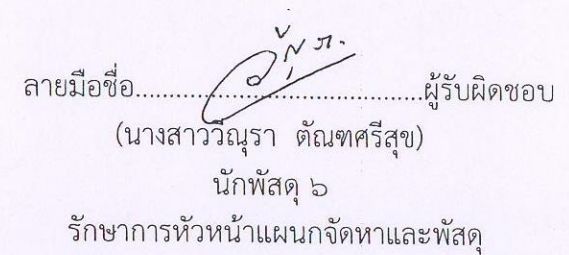 ลายมือชื่อ....................................ผู้รับผิดชอบ
(นางสาววีณุรา ตัณฑศรีสุข)
นักพัสดุ ๖
รักษาการหัวหน้าแผนกจัดหาและพัสดุ